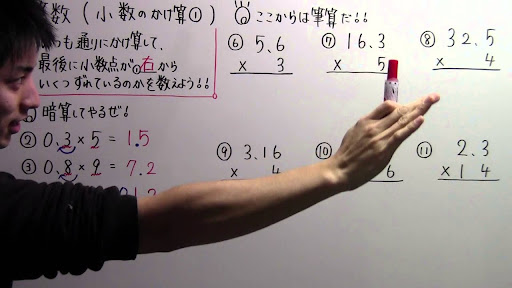 算数(小数のかけ算①)
いつも通りにかけ算して、
最後に小数点が右から
いくつずれているのかを数えよう!!
暗算してやるぜ!
② 0.3×5=1.5
③ 0.8×9=7.2
ここからは筆算だ!!
⑥ 5.6
× 3
⑦ 16.3
× 5
⑧ 32.5
× 4
⑨ 3.16
× 4
⑩
6
⑪ 2.3
×14